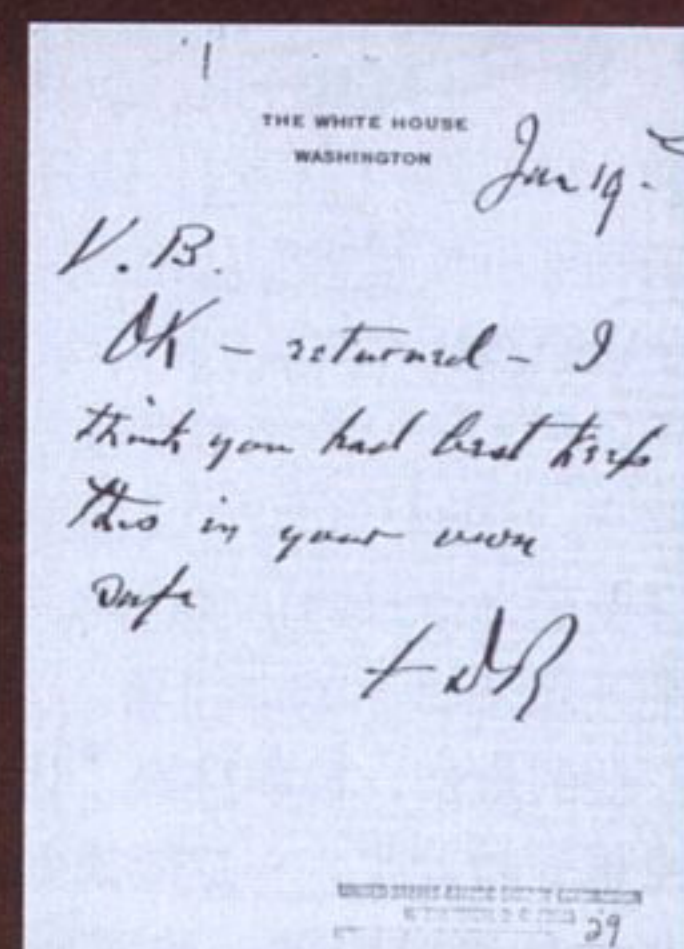 THE WHITE HOUSE
WASHINGTON
Jan 19 -
V. B.
OK – returned – I
think you had best keep
this in your own
safe
FDR
29